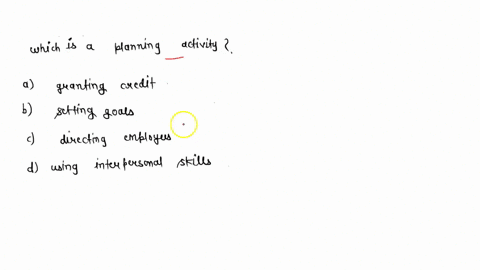 which is a planning activity?.
a) granting credit
b) setting goals
c) directing employees
d) using interpersonal skills